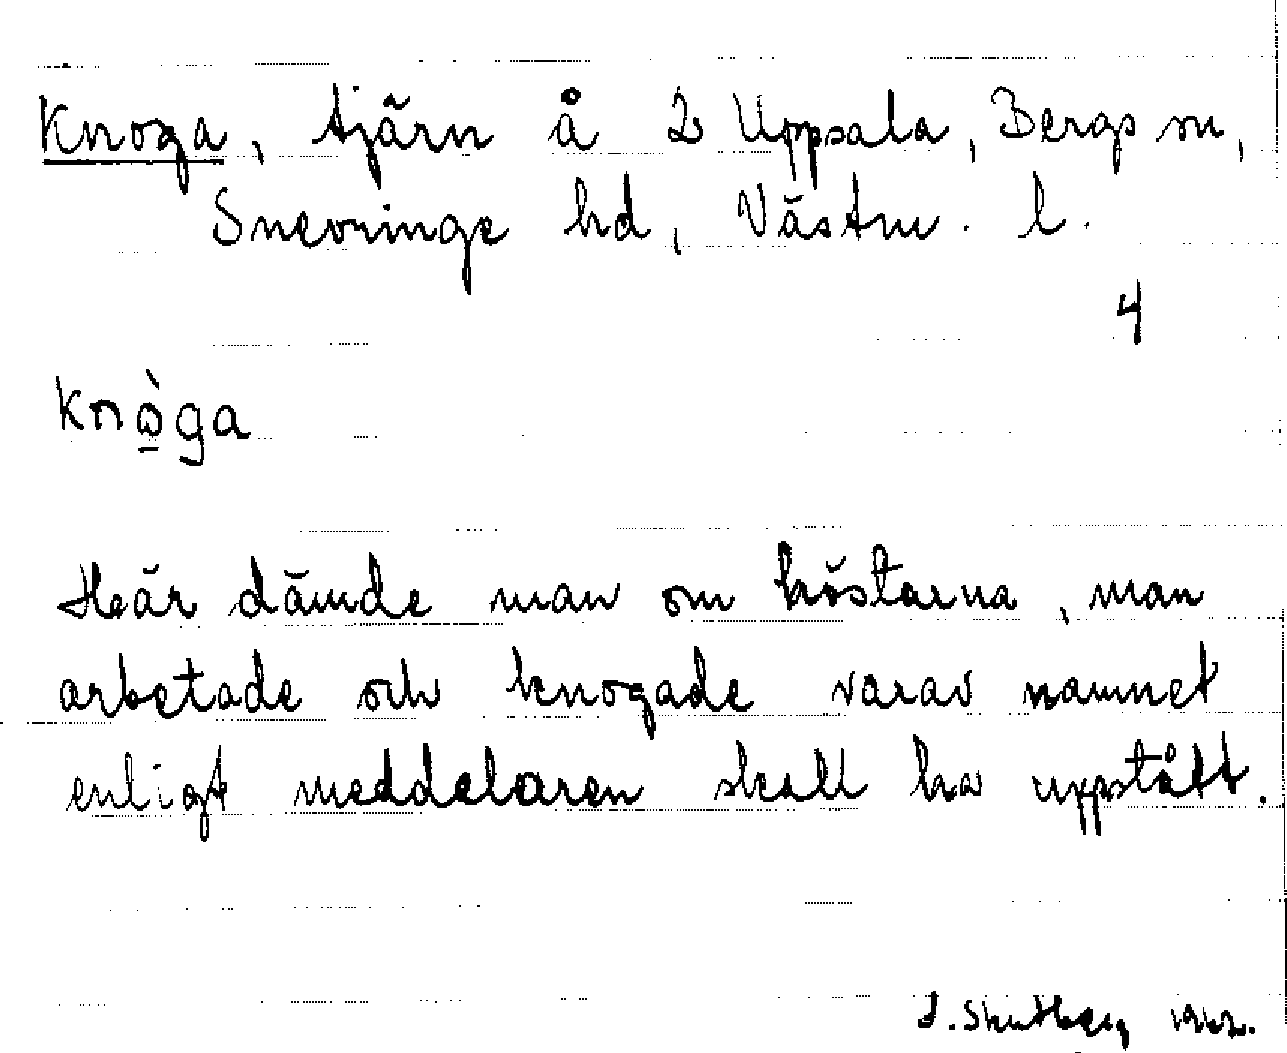 Knoga, tjärn å 2 Uppsala, Bergs sn,
Snevringe hd, Västm. l.
4
knò̱ga
Här dämde man om höstarna, man
arbetade och knogade varav namnet
enligt meddelaren skall ha uppstått.
J.